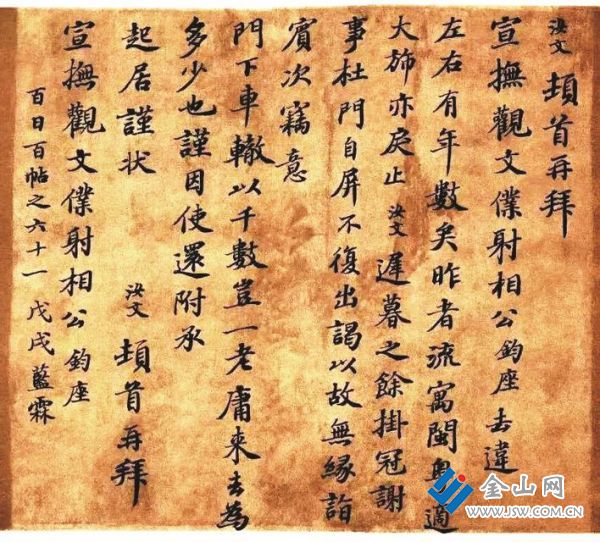 汝文 頓首再拜
宣撫觀文僕射相公 鈞座 去違
左右有年數矣昨者流寓閩粵適
大斾亦戾止 汝文 遲暮之餘掛冠謝
事杜門自屏不復出謁以故無緣詣
賓次竊意
門下車轍以千數豈一老庸來去為
多少也謹因使還附承
起居謹狀
汝文 頓首再拜
宣撫觀文僕射相公 鈞座
百日百帖之六十一 戊戌 藍霖
金山网
www.JSW.COM.CN